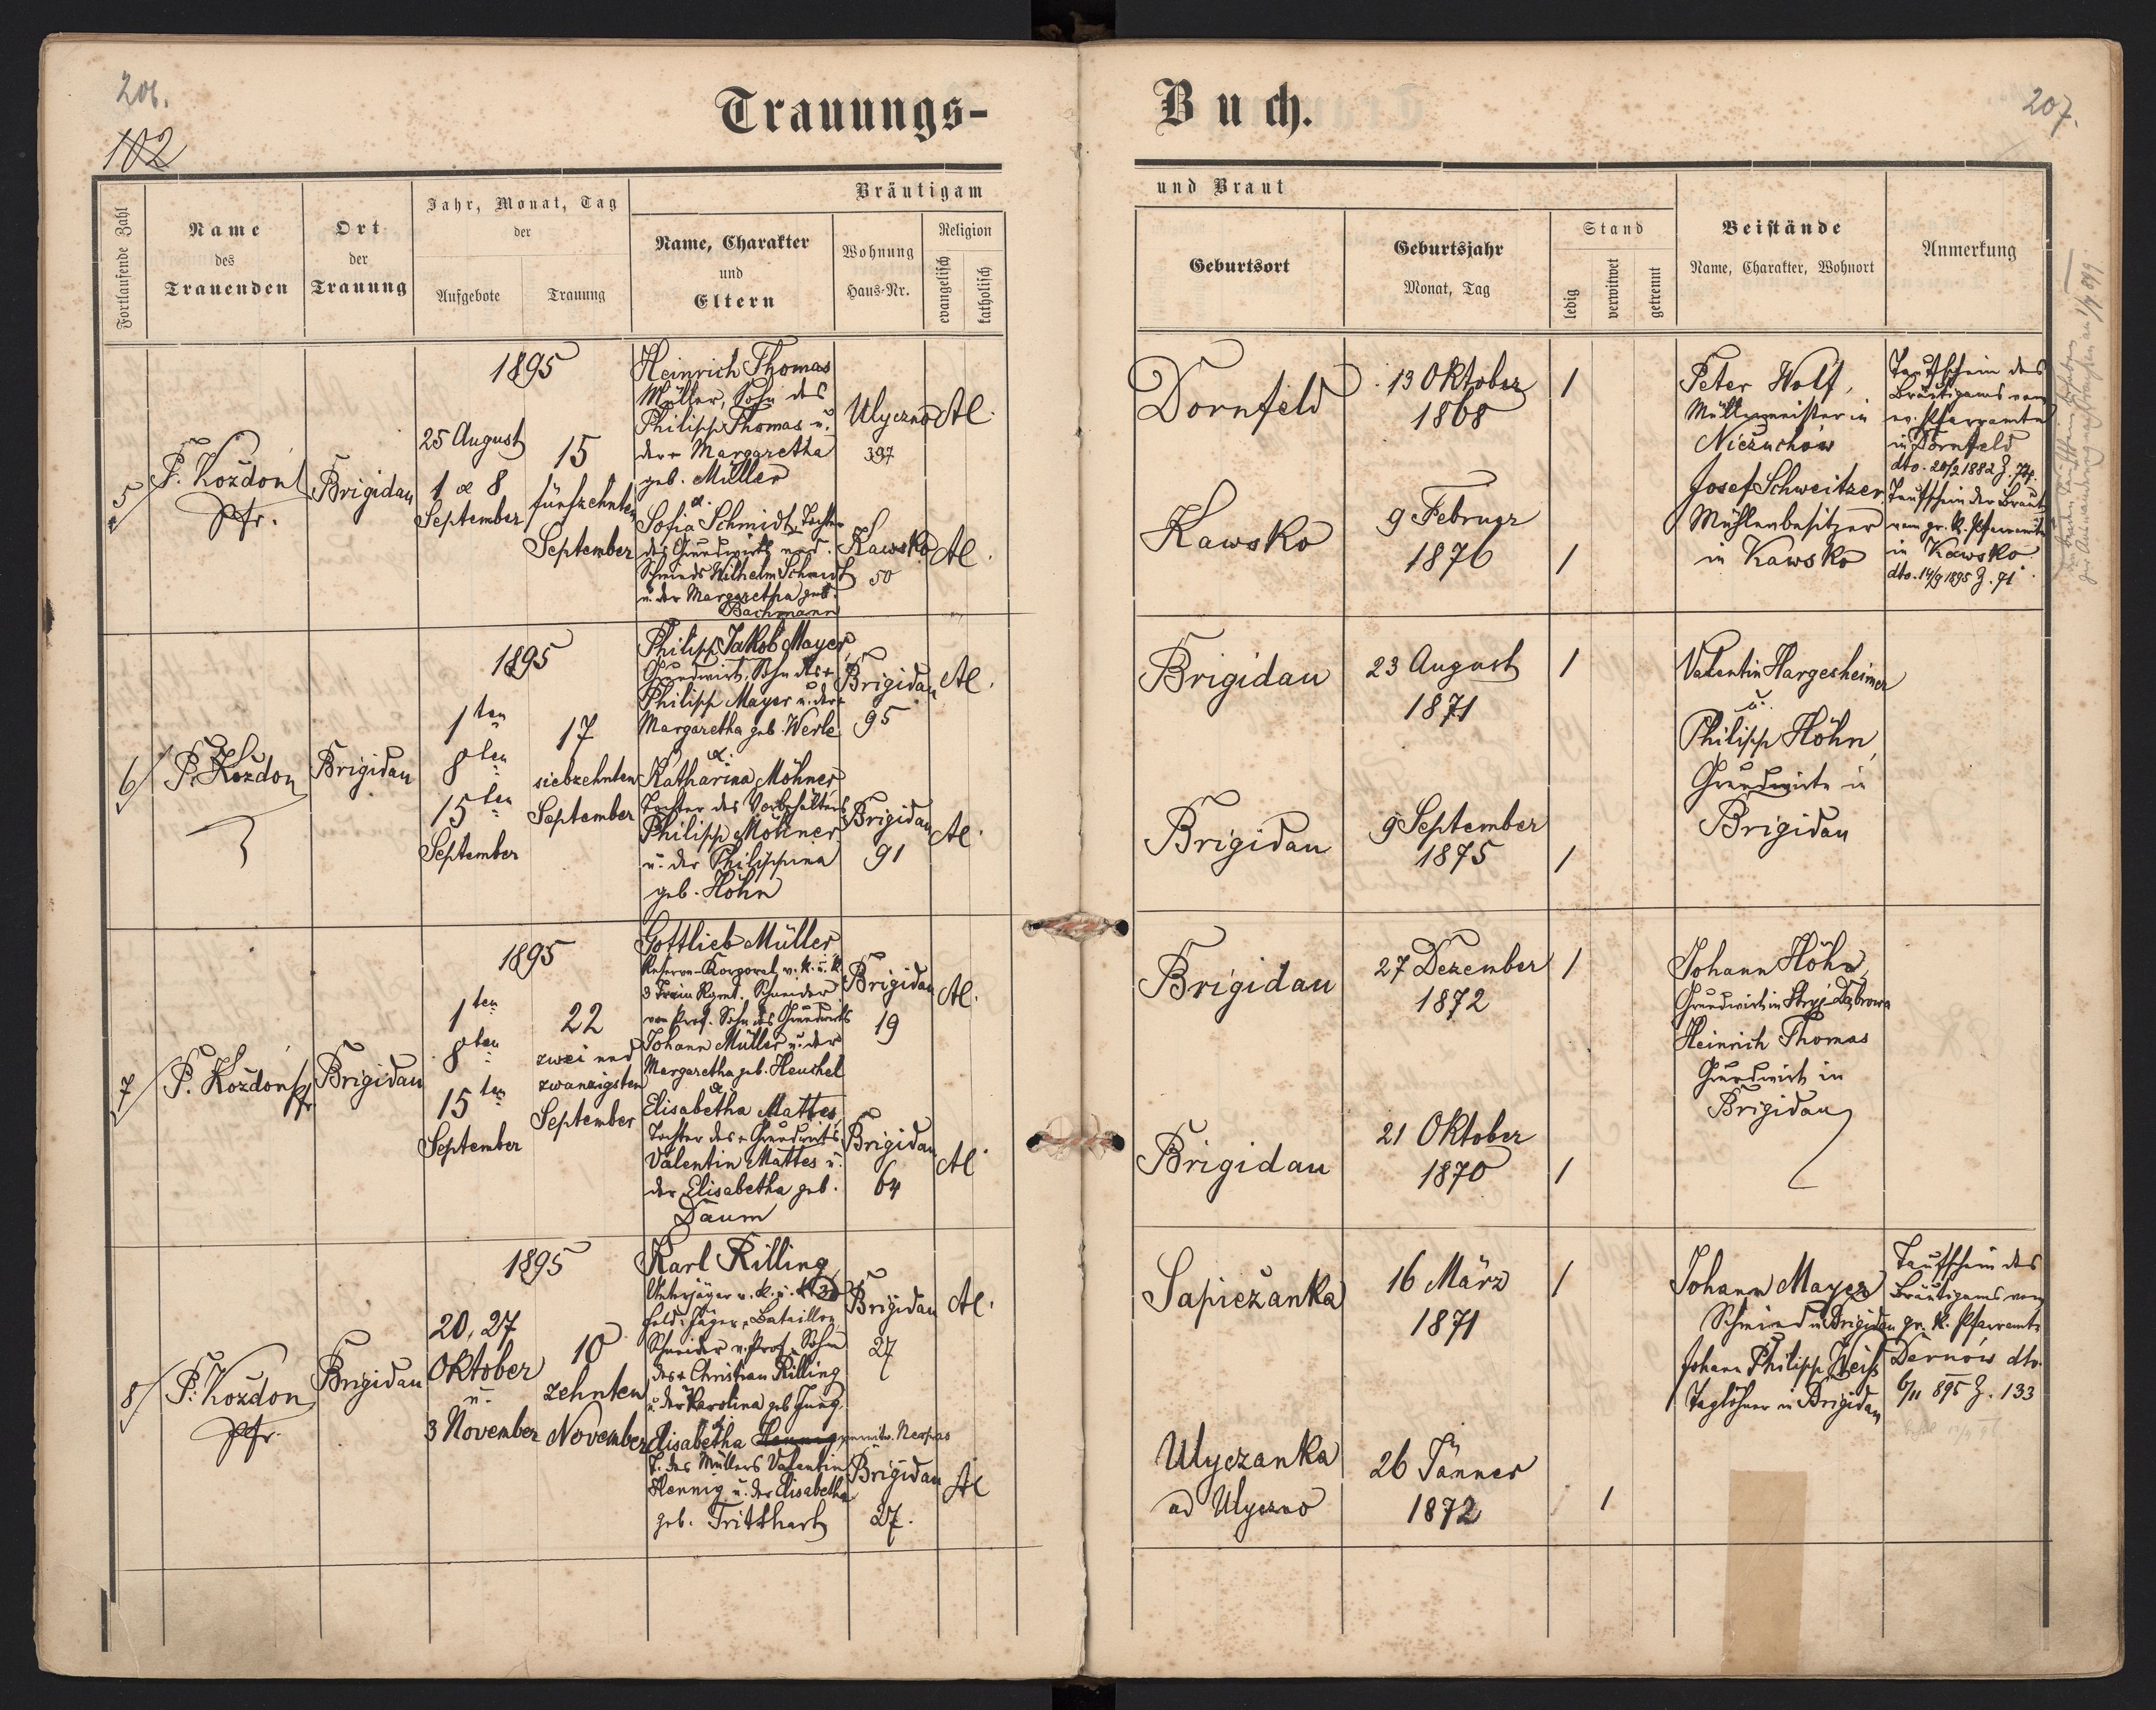 206.
102
Trauungs-
Buch.
207.
Fortlaufende Zahl
Name
des
Trauenden
Ort
der
Trauung
Jahr, Monat, Tag
der
Aufgebote
Trauung
Bräutigam
Name, Charakter
und
Eltern
Wohnung
Haus-Nr.
Religion
evangelisch
katholisch
und Braut
Geburtsort
Geburtsjahr
Monat, Tag
Stand
ledig
verwitwet
getrennt
Beistände
Name, Charakter, Wohnort
Anmerkung
5
P. Kozdoń
Pfr.
Brigidau
1895
25 August
1 & 8
September
15
fünfzehnten
September
Heinrich Thomas
Müller, Sohn des
Philipp Thomas u.
der + Margaretha
geb. Müller
&.
Sofia Schmidt, Tochter
des Grundwirts und
Schmieds Wilhelm Schmidt
u. der Margaretha geb.
Bachmann
Ulyczno
397
AC.
Kawsko
50
AC.
Dornfeld
13 Oktober
1868
1
Kawsko
9 Februar
1876
1
Peter Wolf,
Müllermeister in
Nieżuchów
Josef Schweitzer
Mühlenbesitzer
in Kawsko
Taufschein des
Bräutigams vom
ev. Pfarramte
in Dornfeld
dto. 20/2 1882 Z. 74.
Taufschein der Braut
vom gr. k. Pfarramte
in Kawsko
dto. 14/9 1895 Z. 91
6
P. Kozdon
Brigidau
1895
1ten
8ten
15ten
September
17
siebzehnten
September
Philipp Jakob Mayer,
Grundwirt, Sohn des +
Philipp Mayer u. der +
Margaretha geb. Werle
&.
Katharina Möhner,
Tochter des Vorbehälters
Philipp Möhner
u. der Philippina
geb. Höhn
Brigidau
95
AC.
Brigidau
91
AC.
Brigidau
23 August
1871
1
Brigidau
9 September
1875
1
Valentin Hargesheimer
u.
Philipp Höhn,
Grundwirte in
Brigidau
7
P. Kozdoń Pfr
Brigidau
1895
1ten
8ten
15ten
September
22
zwei und
zwanzigsten
September
Gottlieb Müller
Reserve-Korporal v. k. u. k.
3 Train Rgmt. Schneider
von Prof. Sohn des Grundwirts
Johann Müller u. der
Margaretha geb. Heuchel
&
Elisabetha Mattes
Tochter des + Grundwirts
Valentin Mattes u.
der Elisabetha geb.
Daum
Brigidau
19
AC.
Brigidau
64
AC.
Brigidau
27 Dezember
1872
1
Brigidau
21 Oktober
1870
1
Johann Höhn,
Grundwirt in Stryj-Dąbrowa
Heinrich Thomas
Grundwirt in
Brigidau
8
P. Kozdon
Pfr.
Brigidau
1895
20, 27
Oktober
u.
3 November
10
zehnten
November
Karl Rilling
Unterjäger v. k. u. k. 30
Feld-Jäger-Bataillon
Schneider v. Prof. Sohn
des + Christian Rilling
u. der Karolina geb. Jung.
&.
Elisabetha Hennig verwitw.
T. des Müllers Valentin
Hennig u. der Elisabetha
geb. Tritthart
Brigidau
27
AC.
Brigidau
27.
AC
Sapieżanka
16 März
1871
1
Ulyczanka
ad Ulyczno
26 Jänner
1872
1
Johann Mayer
Schmied in Brigidau
Johann Philipp Weiß
Taglöhner in Brigidau
Taufschein des
Bräutigams vom
gr. k. Pfarramte
Dernów dto.
6/11 895 Z. 133